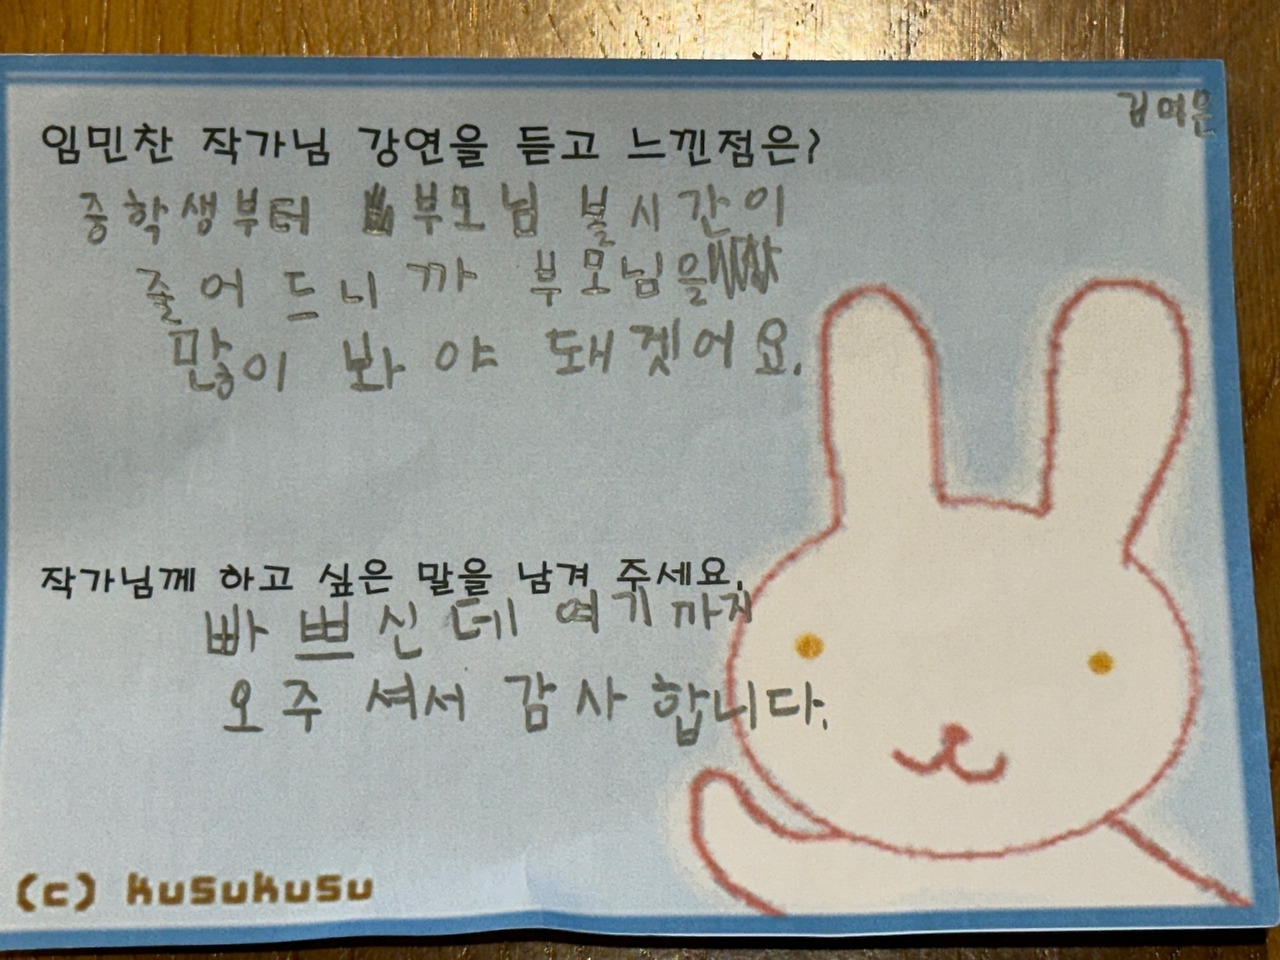 임민찬 작가님 강연을 듣고 느낀점은?
중학생부터 부모님 볼시간이
줄어 드니 까 부모님을
많이 봐 야 돼겟어요.
작가님께 하고 싶은 말을 남겨 주세요.
빠 쁘신데 여기까지
오주 셔서 감사 합니다.
(c) kusukusu